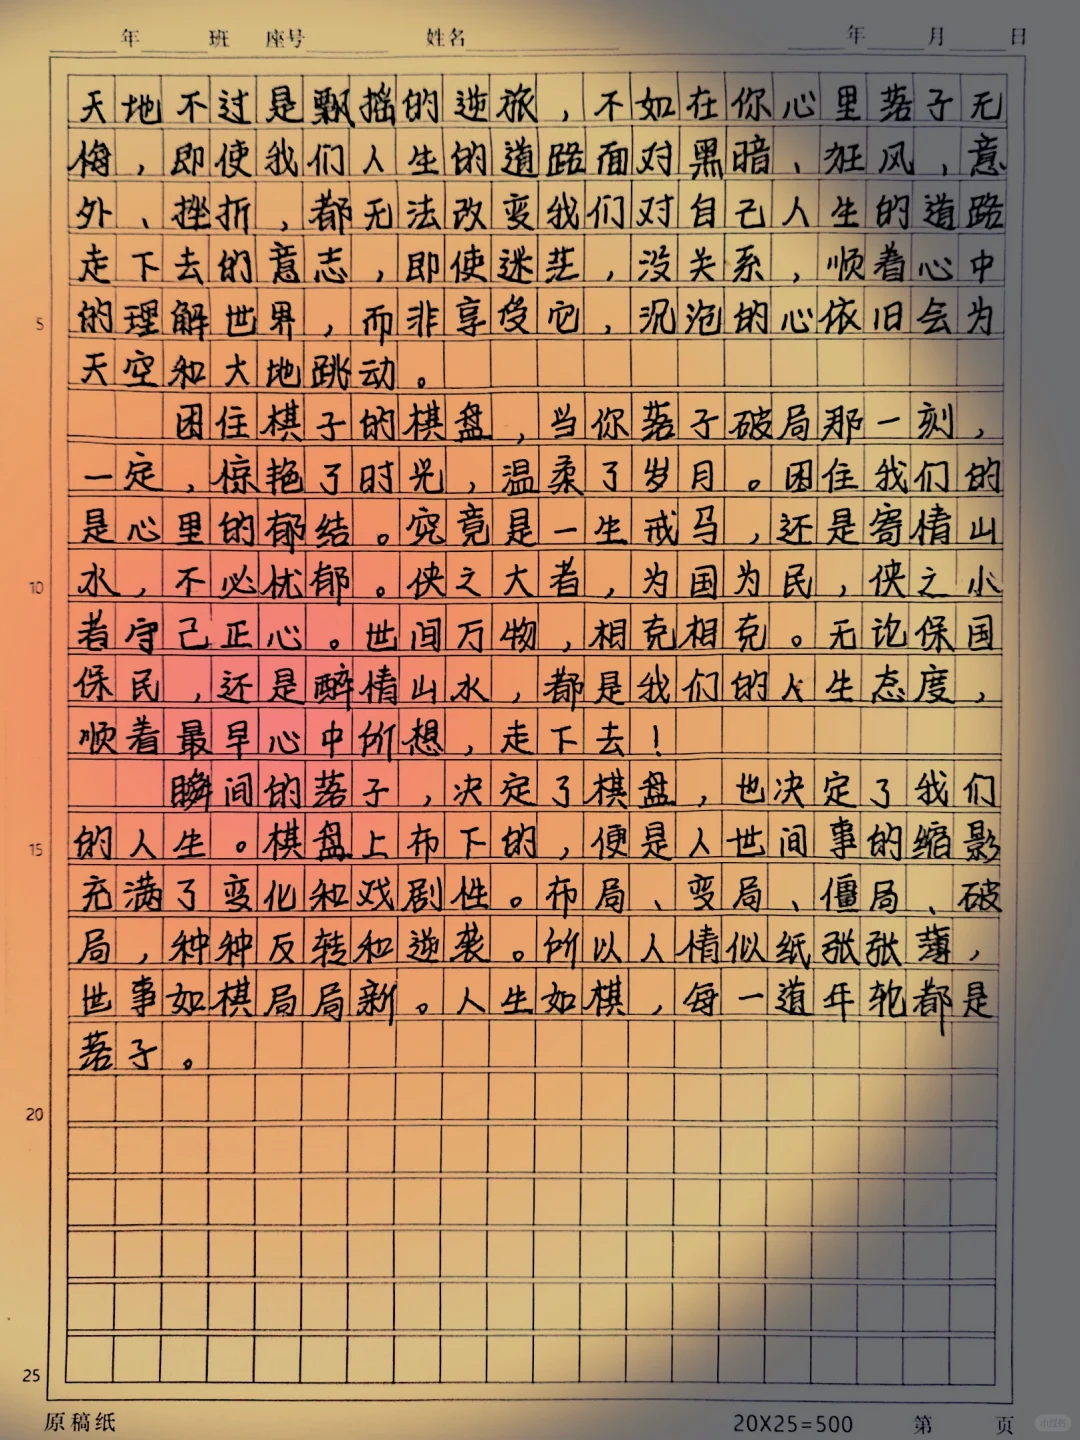 年 班 座号 姓名 年 月 日
天地不过是飘摇的逆旅，不如在你心里落子无
悔，即使我们人生的道路面对黑暗、狂风，意
外、挫折，都无法改变我们对自己人生的道路
走下去的意志，即使迷茫，没关系，顺着心中
5 的理解世界，而非享受它，沉沦的心依旧会为
天空和大地跳动。
困住棋子的棋盘，当你落子破局那一刻，
一定，惊艳了时光，温柔了岁月。困住我们的
是心里的郁结。究竟是一生戎马，还是寄情山
10 水，不必忧郁。侠之大者，为国为民，侠之小
者守己正心。世间万物，相克相克。无论保国
保民，还是醉情山水，都是我们的人生态度，
顺着最早心中所想，走下去！
瞬间的落子，决定了棋盘，也决定了我们
15 的人生。棋盘上布下的，便是人世间事的缩影
充满了变化和戏剧性。布局、变局、僵局、破
局，种种反转和逆袭。所以人情似纸张张薄，
世事如棋局局新。人生如棋，每一道年轮都是
落子。
20
25
原稿纸 20X25=500 第 页
小红书